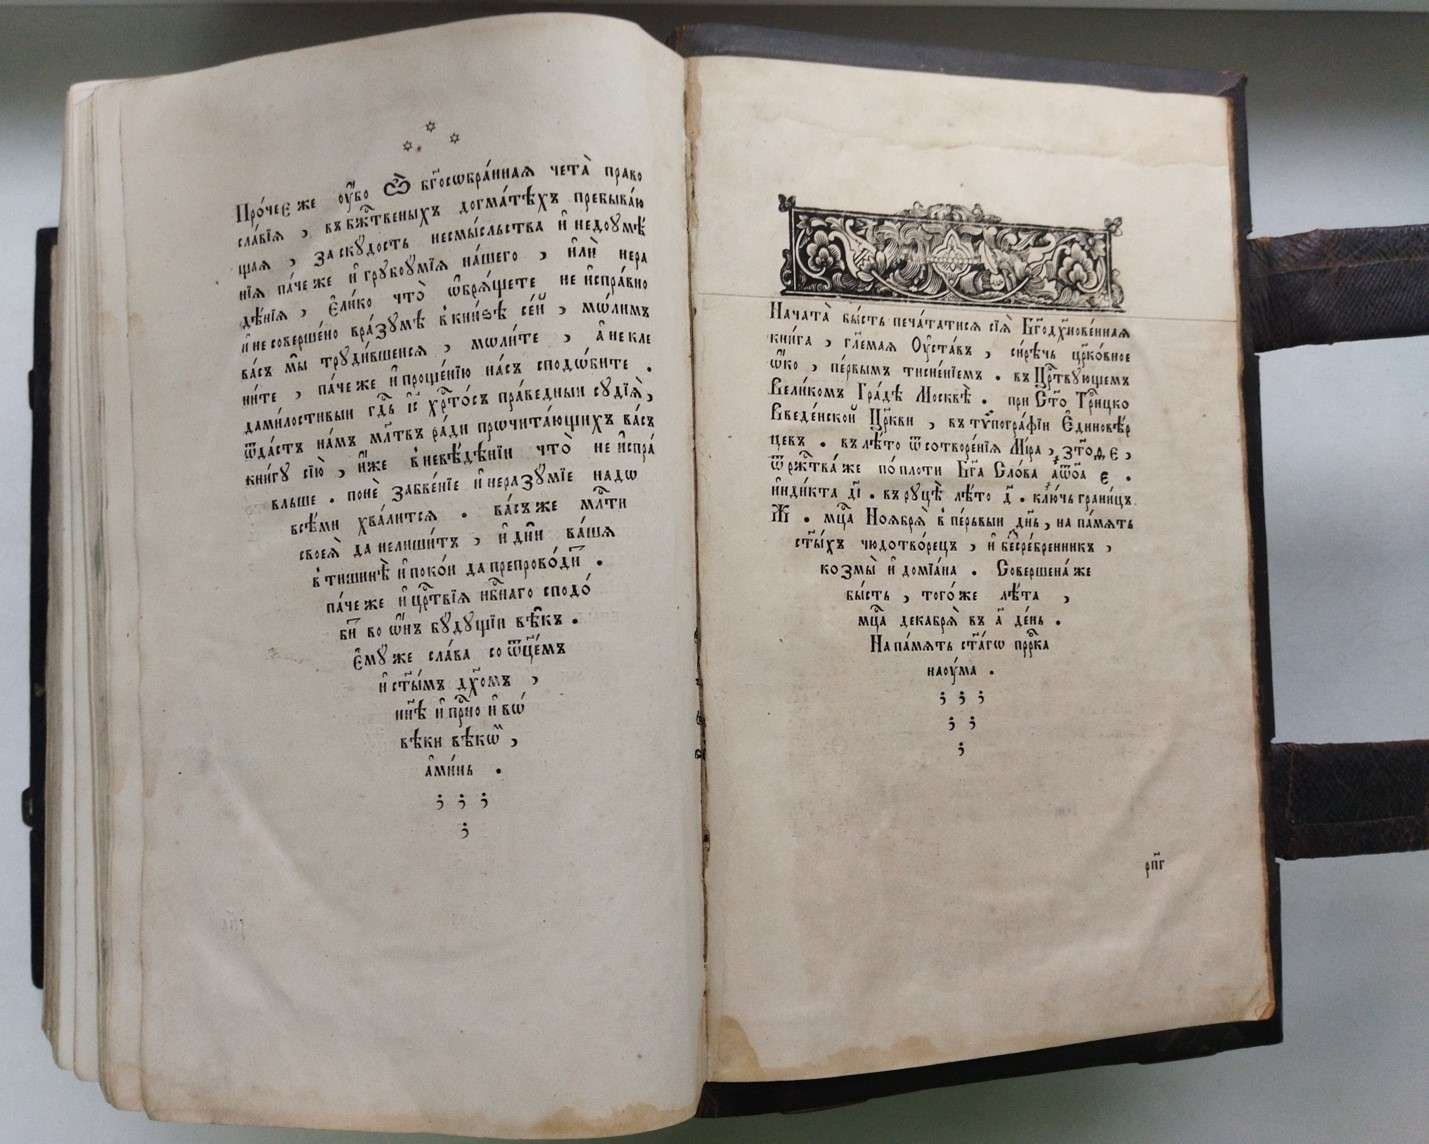 Про́чеє же ᲂу҆̀бо ѽ бг҃осѡбра́нная чета̀ право
сла́вїя , въ бж҃твеныхъ догма́тѣхъ пребыва́ю
щая , за скꙋдость несмы́сльства и҆ недоꙋмѣ́
нїя па́че же и҆ грꙋбоꙋмїя на́шего , и҆лѝ нера
дѣ́нїя , є҆ли́ко что̀ ѡ҆брѧ́щете не и҆спра́вно
и҆ не соверше́но вразꙋмѣ̀ в кни́зѣ се́й , мѡ́лимъ
ва́съ мы̀ трꙋди́вшеися , мѡли́те , а҆ не кле
ни́те , па́че же и҆ проще́нїю на́съ сподѡ́бите .
да милостивыи гд҇ь і҆с҃ хрⷭ҇то́съ пра́ведныи сꙋдїѧ̀ ,
ѿда́стъ на́мъ мл҃твъ ра́ди прочита́ющихъ ва́съ
кни́гꙋ сїю̀ , и҆́же в невѣ́дѣнїи что̀ не и҆спра́
вльше . понѐ забве́нїе и҆ неразꙋ́мїе надѡ
всѣ́ми хва́лится . ва́съ же млⷭ҇ти
своеѧ̀ да не лиши́тъ , и҆ дн҃и ва́шя
в тишинѣ̀ и҆ поко́и да препрово́дит .
па́че же и҆ црⷭ҇твїя нбⷭ҇наго сподо́
бит во ѻ҆́нъ бꙋдꙋщїи вѣ́къ .
Є҆мꙋ́ же сла́ва со ѻ҆ц҃емъ
и҆ ст҃ы́мъ дх҃омъ ,
нн҃ѣ и҆ прⷭ҇но и҆ вѡ́
вѣки вѣкѡ́м ,
а҆ми́нь .
Начата̀ бы́сть печа́татися сїѧ̀ Бг҃одх҃нове́нная
кни́га , гл҃емая Оу҆ста́въ , си́рѣчь цр҃ко́вное
ѻ҆́ко , пе́рвымъ тисне́нїемъ . въ Црⷭ҇твꙋющемъ
Вели́комъ Гра́дѣ Москвѣ̀ . при Ст҃о Трⷪ҇ицко
Введе́нской Цр҃кви , въ тѷпогра́фїи Є҆диновѣ́р
цевъ . въ лѣ́то ѿ сотворе́нїя Мі́ра , ҂зтѻ҃е ,
ѿ ржⷭ҇тва́ же по пло́ти Бг҃а Сло́ва ҂аѡѯ҃а є .
и҆нди́кта ді҃ . въ рꙋцѣ̀ лѣ́то д҃ . клю́чь грани́цъ
Ж҃ . мцⷭ҇а Ноябрѧ̀ в пе́рвыи дн҃ь , на па́мять
ст҃ы́хъ чюдотво́рецъ , и҆ безсре́бренникъ ,
козмы̀ и҆ домїа́на . Соверше́на же
бы́сть , того́ же лѣ́та ,
мцⷭ҇а декабрѧ̀ въ а҃ де́нь .
На па́мять ст҃а́гѡ прⷪ҇рка
наꙋ́ма .
рпг҃